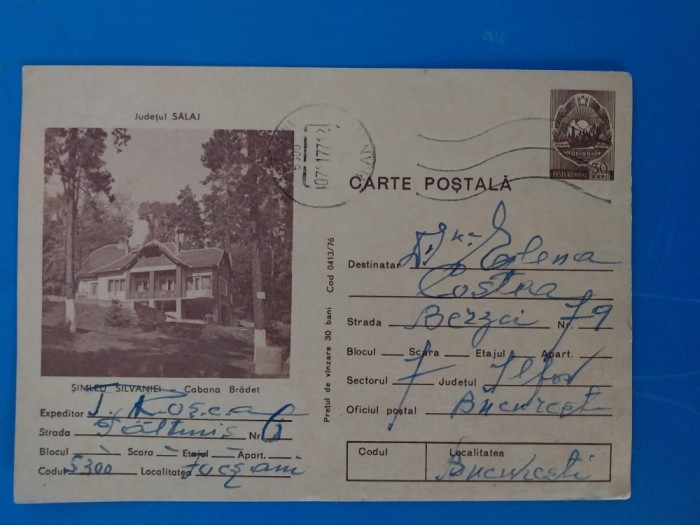 Județul SĂLAJ
ȘIMLEU SILVANIEI - Cabana Brădet
Expeditor T. Roșca
Strada Nr. 6
Blocul Scara Etajul Apart.
Codul 5300 Localitatea Focșani
Prețul de vînzare 30 bani Cod 0413/76
5300
07.11.77.12
POSTA ROMANA
30 BANI
CARTE POȘTALĂ
Destinatar D-ka Elena
Costea
Strada Berzei Nr. 79
Blocul Scara Etajul Apart.
Sectorul 7 Județul Ilfov
Oficiul poștal București
Codul Localitatea
București